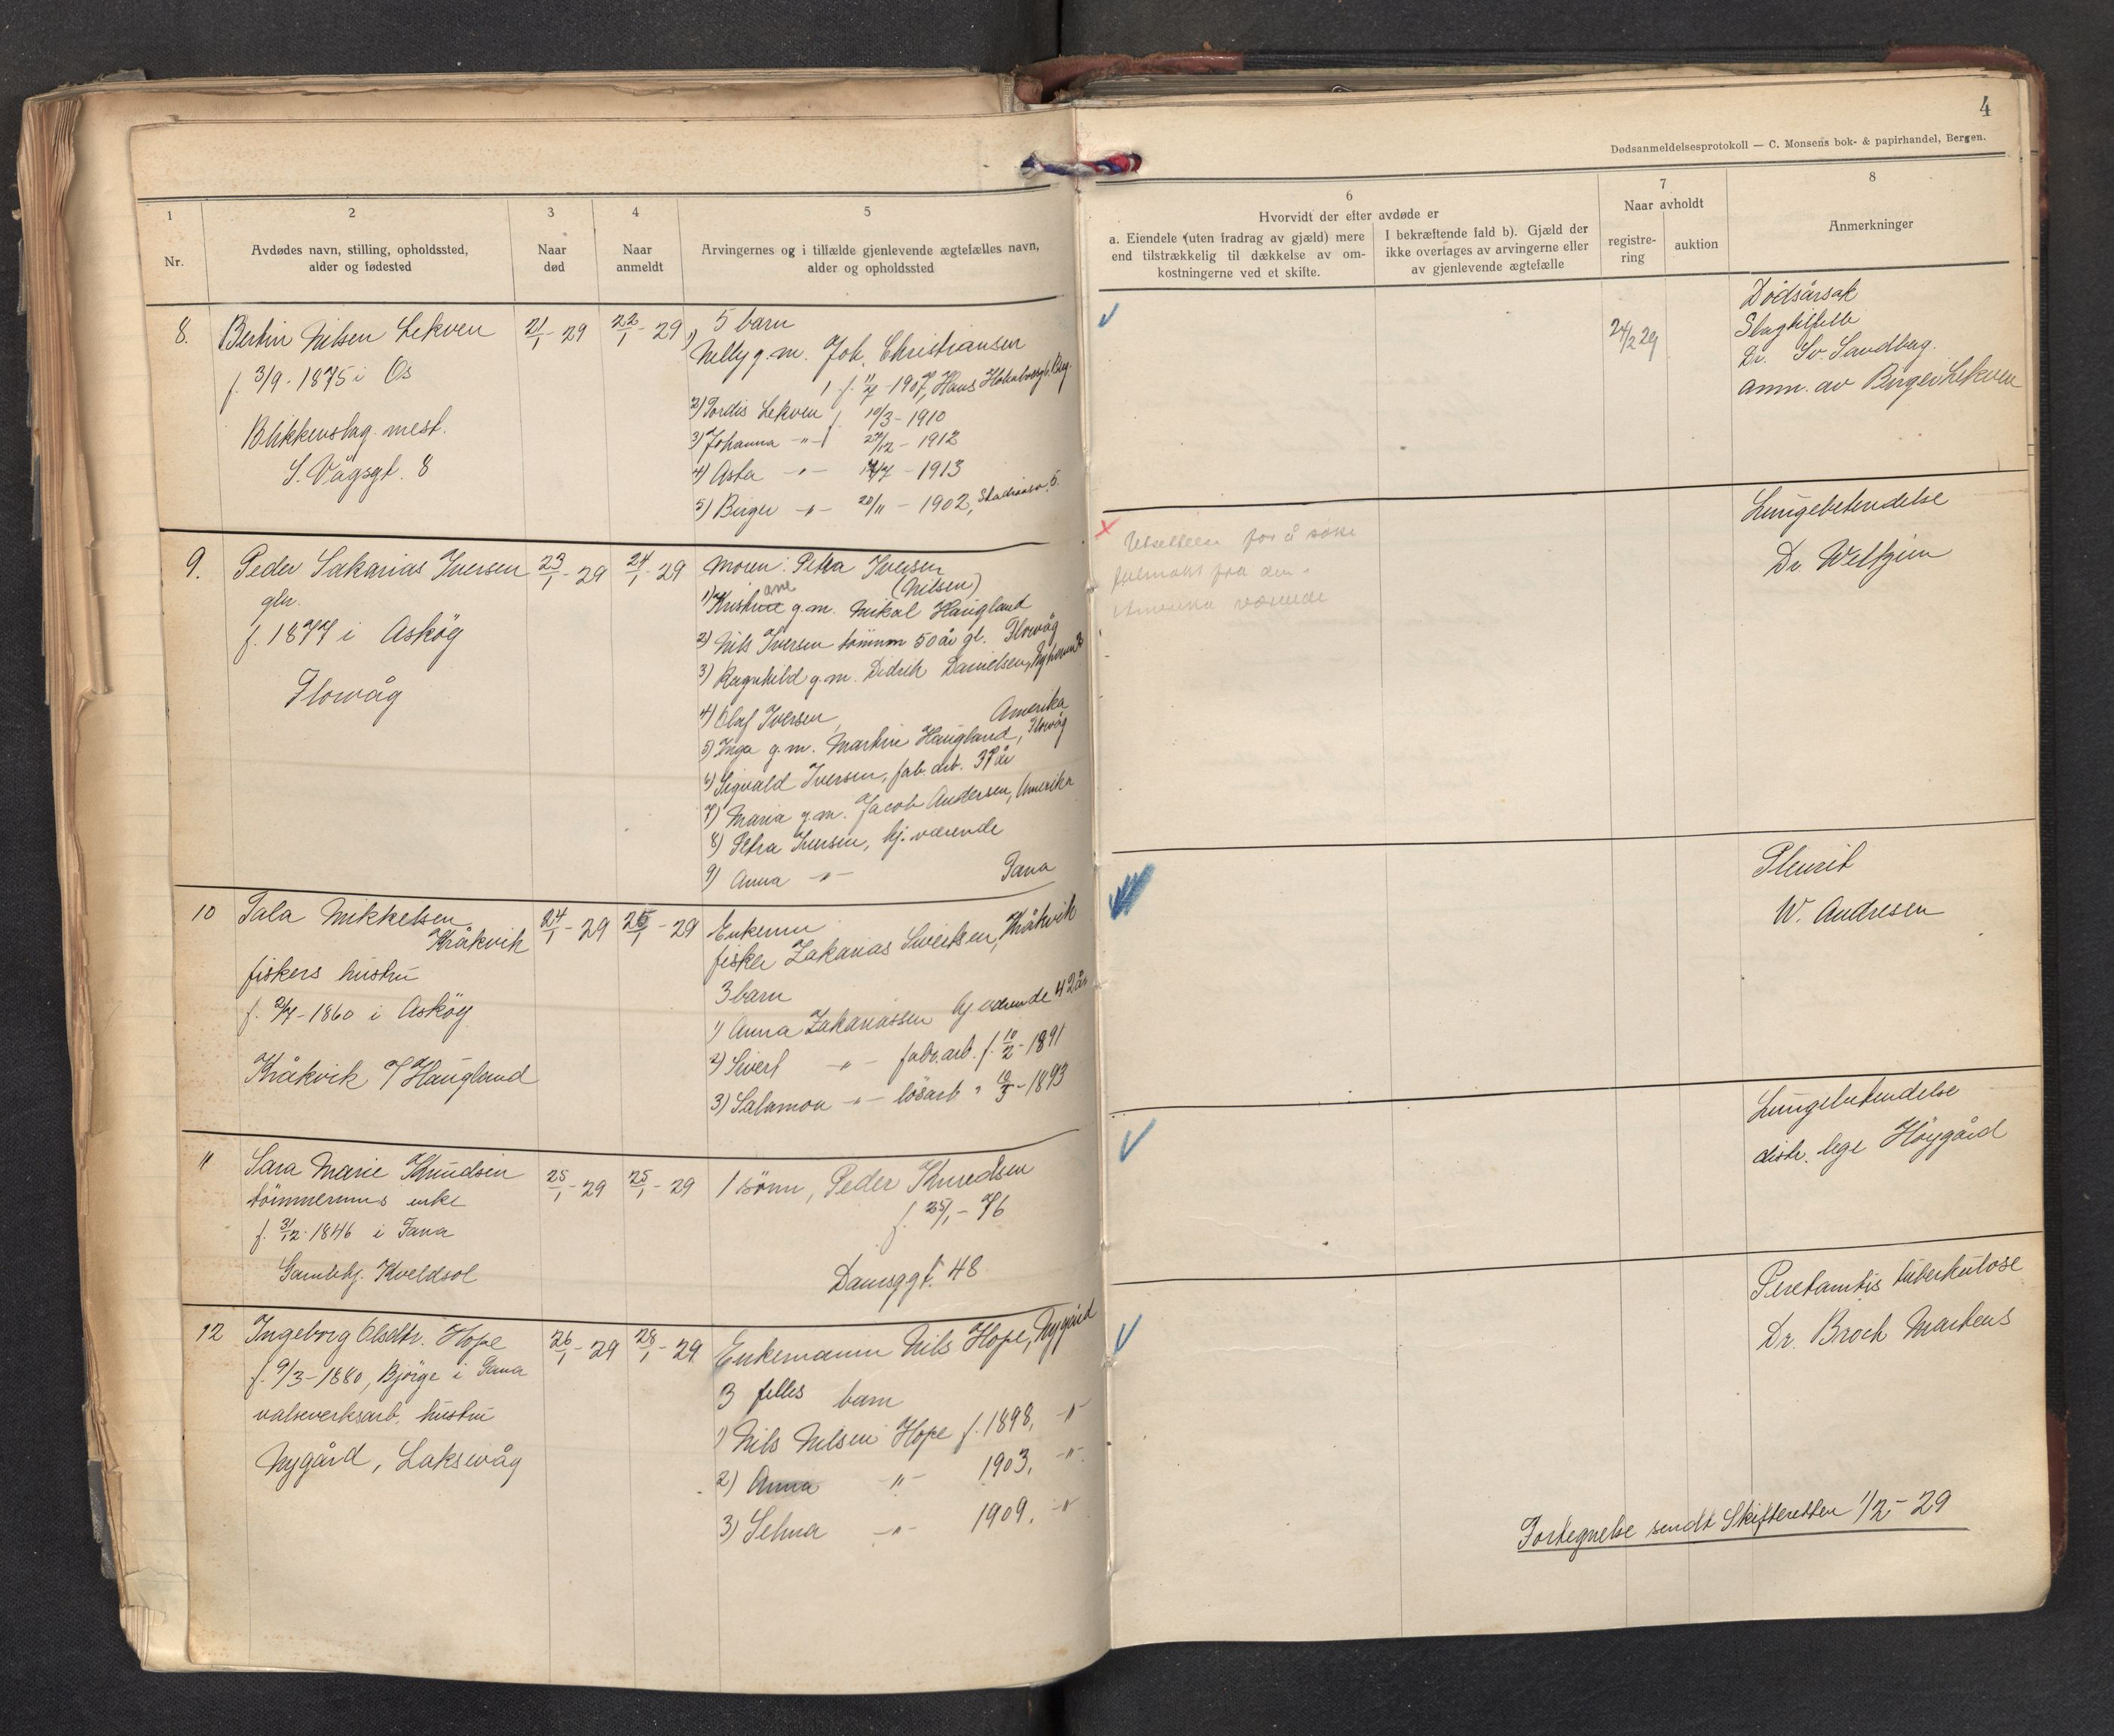 4
Dødsanmeldelsesprotokoll — C. Monsens bok- & papirhandel, Bergen.
1
Nr.
2
Avdødes navn, stilling, opholdssted,
alder og fødested
3
Naar
død
4
Naar
anmeldt
5
Arvingernes og i tilfælde gjenlevende ægtefælles navn,
alder og opholdssted
6
Hvorvidt der efter avdøde er
a. Eiendele (uten fradrag av gjæld) mere
end tilstrækkelig til dækkelse av om-
kostningerne ved et skifte.
I bekræftende fald b). Gjæld der
ikke overtages av arvingerne eller
av gjenlevende ægtefælle
7
Naar avholdt
registre-
ring
auktion
8
Anmerkninger
8.
Bertin Nilsen Lekven
f. 3/9 - 1875 i Os
Blikkenslag. mest.
S. Vågsgt. 8
21/1 - 29
22/1 - 29
5 barn
1) Nelly g. m. Joh. Christiansen
f. 11/7 - 1907, Hans Holmboesgt. Brg.
2) Tordis Lekven f. 10/3 - 1910
3) Johanna -"- 27/12 - 1912
4) Asta -"- 14/7 - 1913
5) Birger -"- 20/11 - 1902, 5.
24/2 29
Dødsårsak
Slagtilfelle
Dr. Sv. Sandberg.
anm. av Birger Lekven
9.
Peder Sakarias Iversen
gbr.
f. 1877 i Askøy
Florvåg
23/1 - 29
24/1 - 29
Moren: Petra Iversen
(Nilsen)
1) Kristiane g. m. Mikal Haugland
2) Nils Iversen tømmm 50 år gl. Florvåg
3) Ragnhild g. m. Didrik Danielsen,
4) Olaf Iversen, Amerika
5) Inga g. m. Martin Haugland, Florvåg
6) Sigvald Iversen, fab. arb. 37 år
7) Maria g. m. Jacob Andersen, Amerika
8) Petra Iversen, hj. værende
9) Anna -"- Fana
x
Utsettelse for å søke
fullmakt fra den i
Amerika værende
Lungebetendelse
Dr. Weltzien
10
Tala Mikkelsen
Kråkvik
fiskers hustru
f. 2/7 - 1860 i Askøy
Kråkvik i/ Haugland
24/1 - 29
25/1 - 29
Enkemm
fisker Zakarias Sivertsen, Kråkvik
3 barn
1) Anna Zakariassen hj værende 42 år
2) Sivert -"- fabr. arb. f. 10/2 - 1891
3) Salamon -"- løsarb " 10/3 - 1893
Pleurit
W. Andresen
11
Sara Marie Knudsen
tømmermns enke
f. 31/12 - 1846 i Fana
Gamlehj. Kveldsol
25/1 - 29
25/1 - 29
1 sønn, Peder Knudsen
f. 25/1 - 76
Damsggt. 48
Lungebetendelse
distr. lege Høygård
12
Ingeborg Olsdtr. Hope
f. 9/3 - 1880, Bjørge i Fana
valseverksarb. hustru
Nygård, Laksevåg
26/1 - 29
28/1 - 29
Enkemann Nils Hope, Nygård
3 felles barn
1) Nils Nilsen Hope f. 1898, -"-
2) Anna -"- 1903, -"-
3) Selma -"- 1909, -"-
tuberkulose
Dr. Broch Martens
Fortegnelse sendt Skifteretten 1/2 - 29